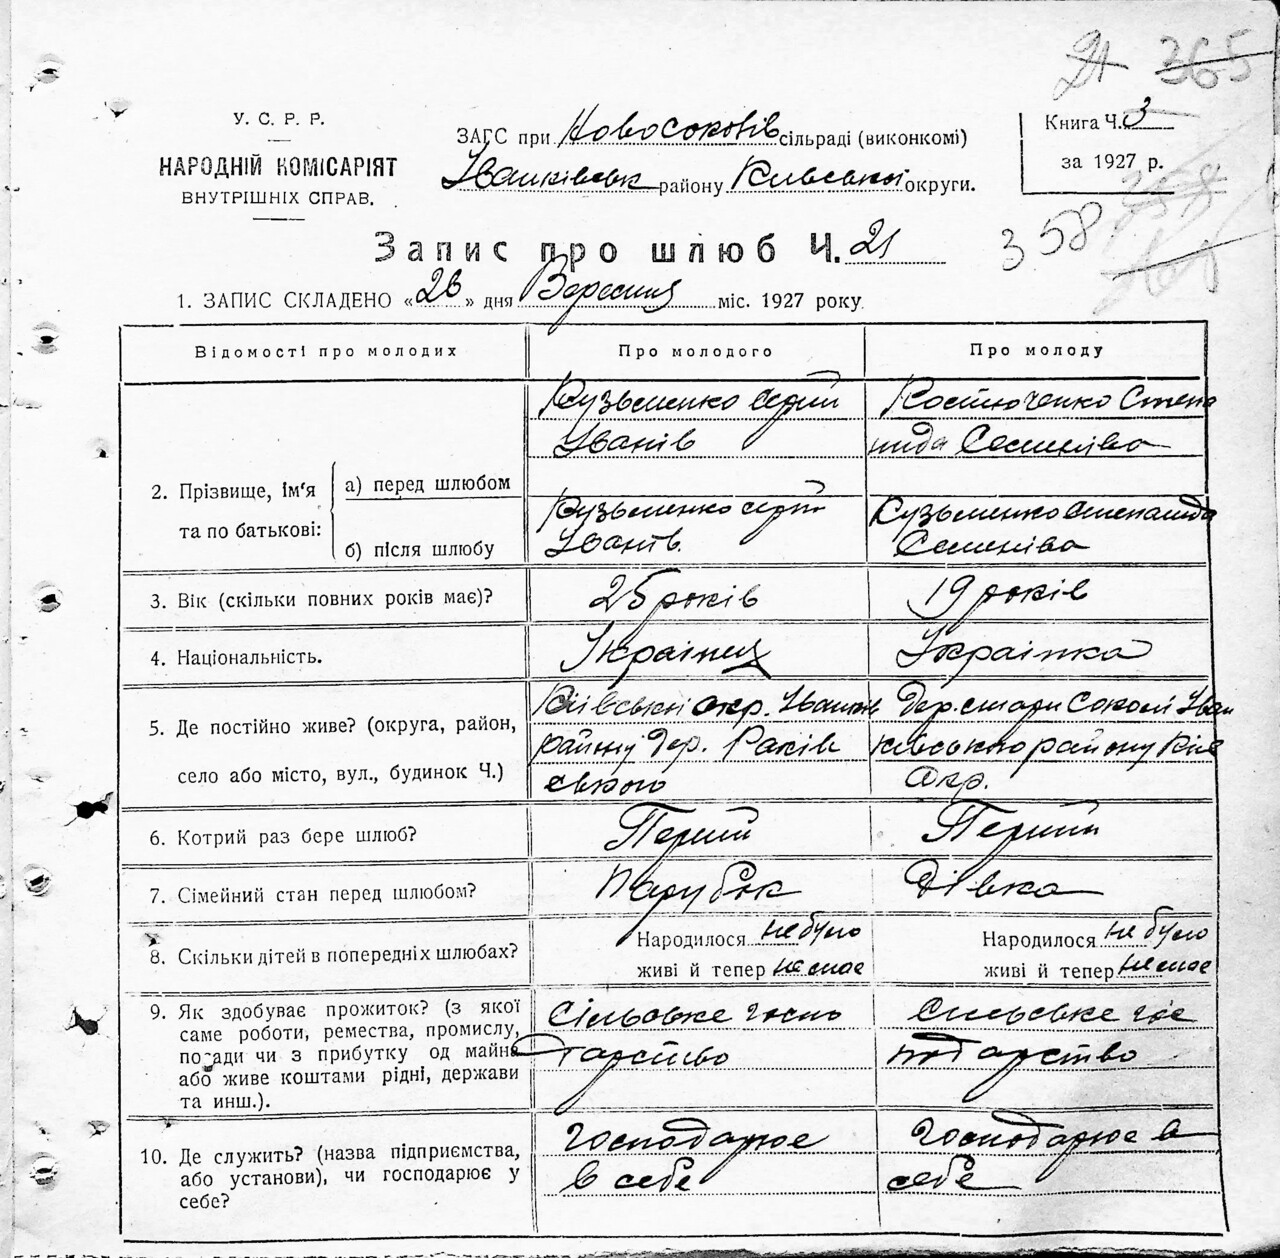 21 365
У. С. Р. Р.
НАРОДНІЙ КОМІСАРІЯТ
ВНУТРІШНІХ СПРАВ.
ЗАГС при Новосоколів сільраді (виконкомі)
Іванківськ району Київської округи.
Книга Ч. 3
за 1927 р.
358
Запис про шлюб Ч. 21
1. ЗАПИС СКЛАДЕНО «26» дня Вересня міс. 1927 року.
Відомості про молодих Про молодого Про молоду
2. Прізвище, ім'я та по батькові:
а) перед шлюбом
Кузьменко Сергій
Іванів
Костюченко Степа
нида Семенівна
б) після шлюбу
Кузьменко Сергій
Іванів.
Кузьменко Степанида
Семенівна
3. Вік (скільки повних років має)? 25 років 19 років
4. Національність. Українец Українка
5. Де постійно живе? (округа, район,
село або місто, вул., будинок Ч.)
Київської окр. Іванків
району Дер. Раків
ського
Дер. стари Соколи Іван
ківського району Київ
Окр.
6. Котрий раз бере шлюб? Перший Перший
7. Сімейний стан перед шлюбом? Парубок Дівка
8. Скільки дітей в попередніх шлюбах?
Народилося не було
живі й тепер немає
Народилося не було
живі й тепер немає
9. Як здобуває прожиток? (з якої
саме роботи, ремества, промислу,
посади чи з прибутку од майна
або живе коштами рідні, держави
та инш.).
Сільське госпо
дарство
Сильське гос
подарство
10. Де служить? (назва підприємства,
або установи), чи господарює у
себе?
Господарює
в себе
Господарює в
себе